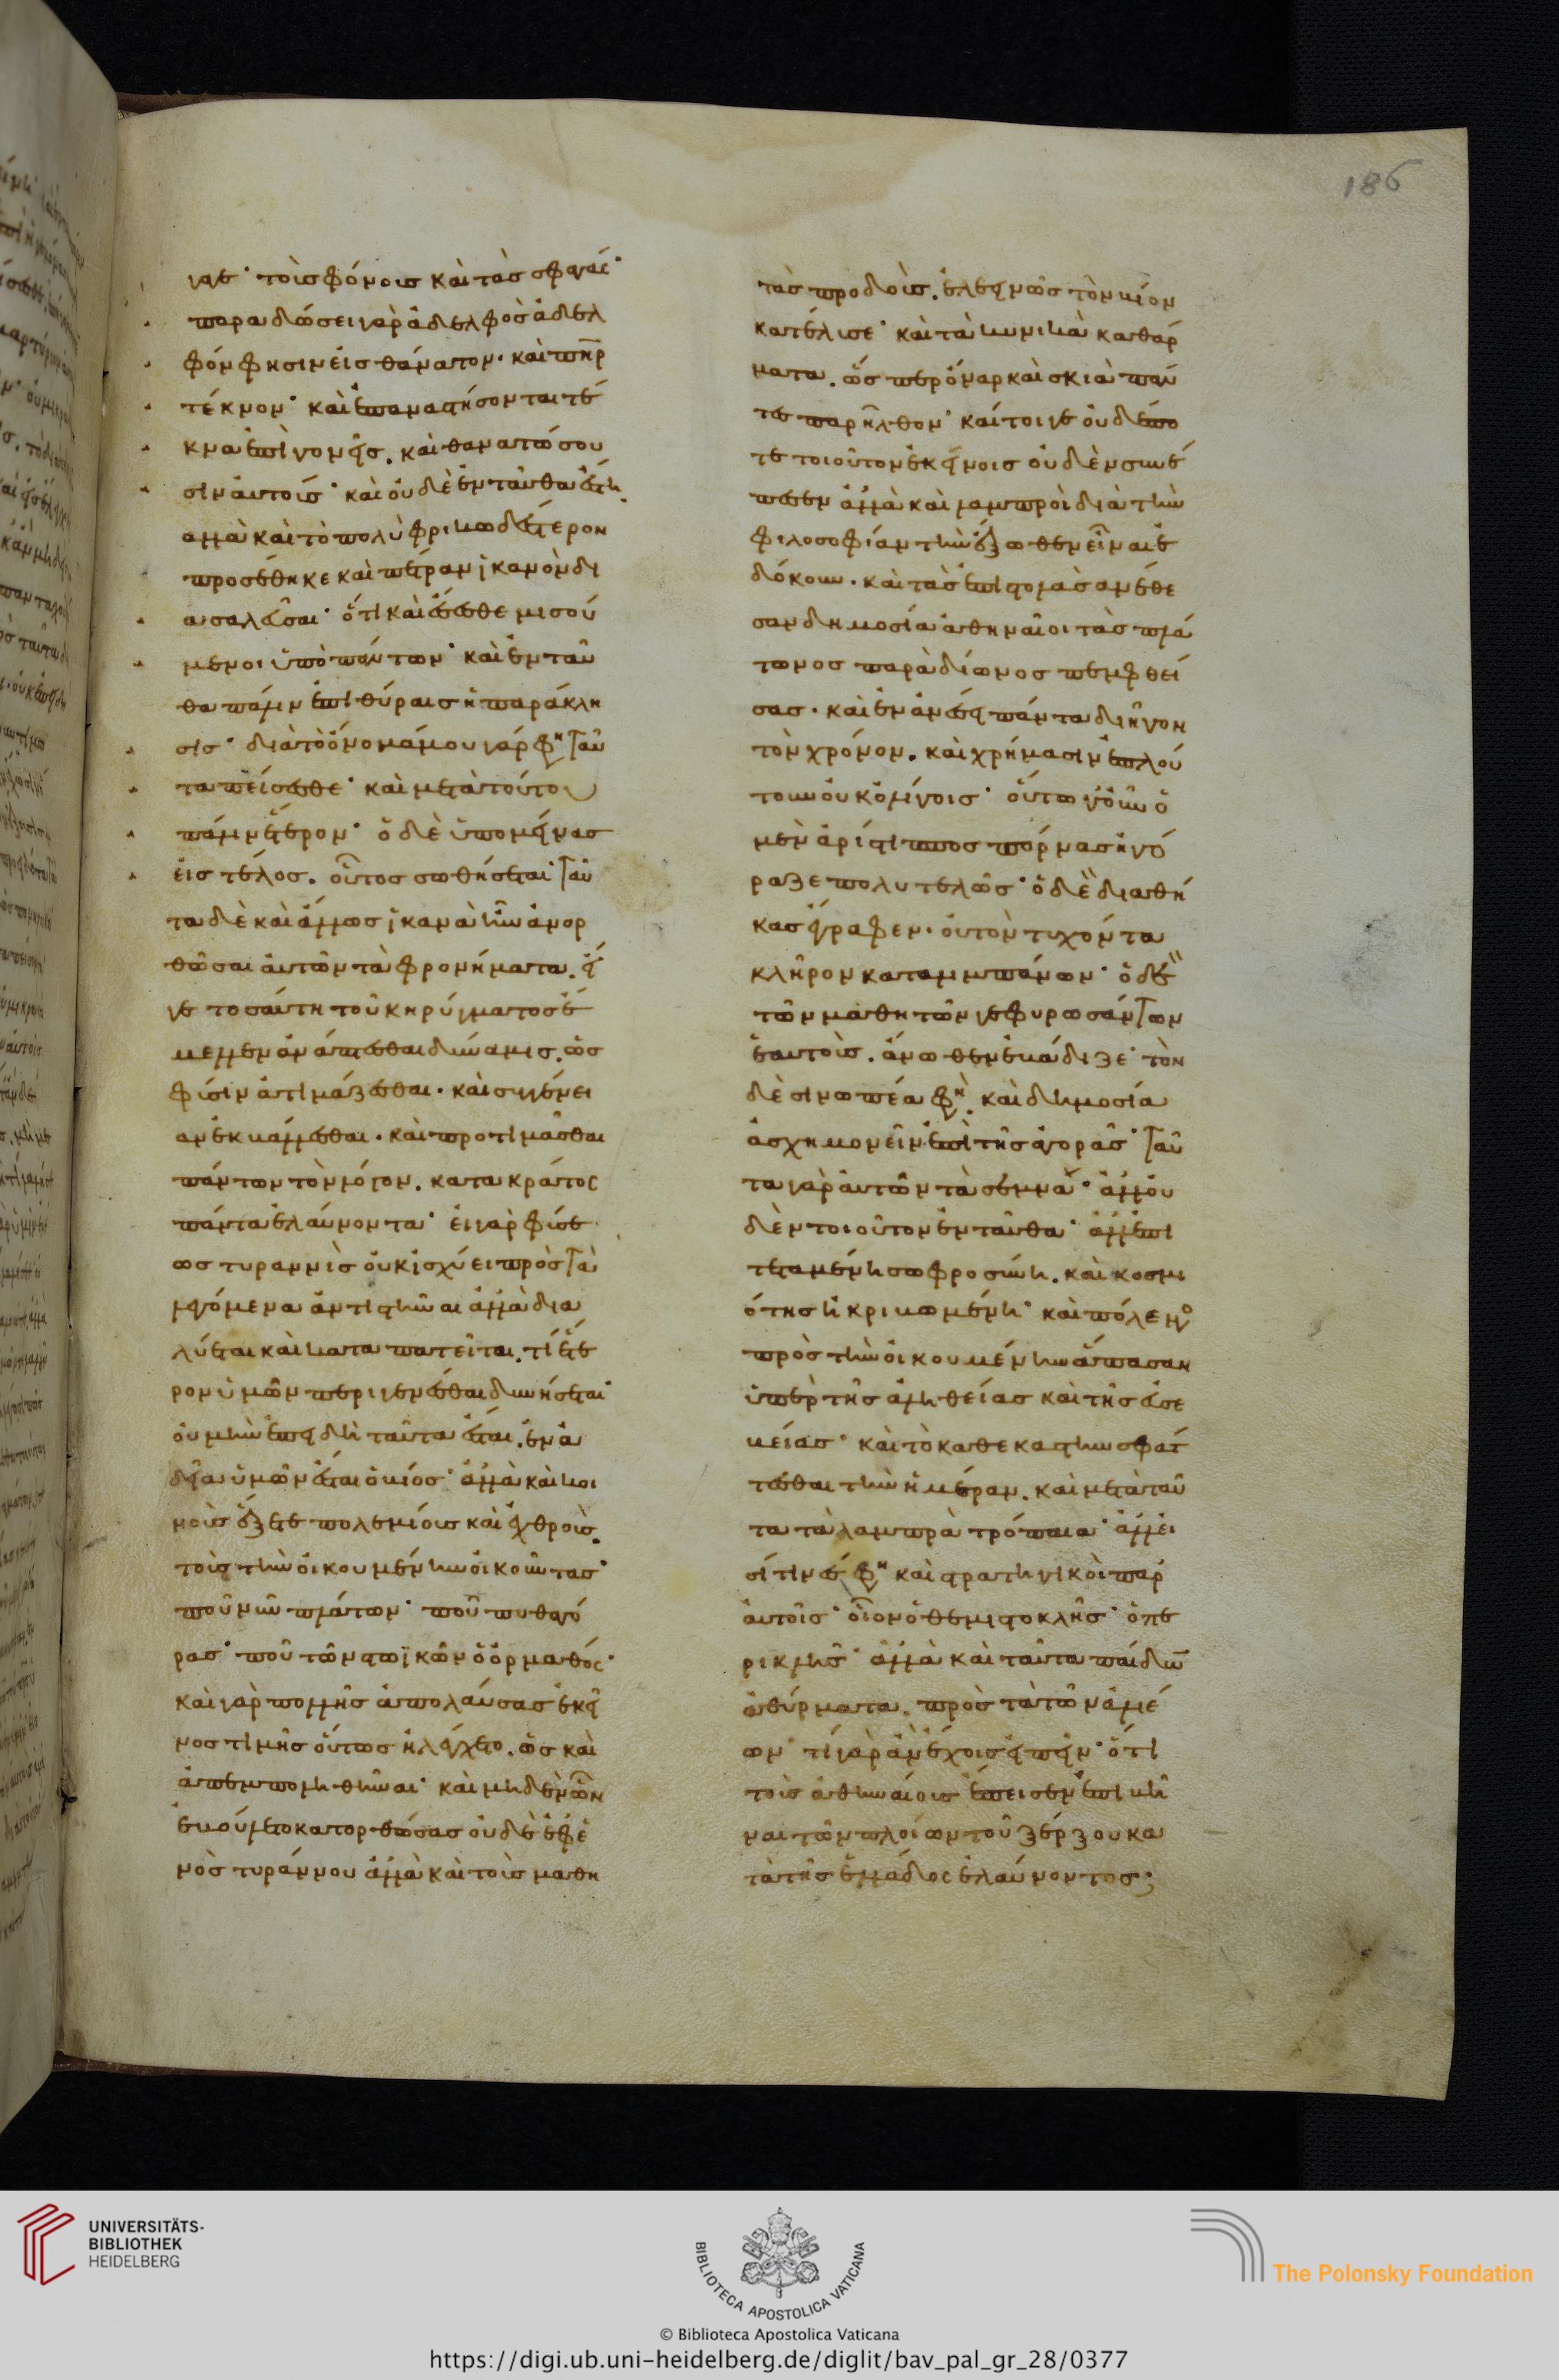 186
γαγε· τοῖς φόνοις καὶ τὰς σφαγάς·
παραδώσει γὰρ ἀδελφὸς ἀδελ
φόν φησιν εἰς θάνατον· καὶ πηρ
τέκνον· καὶ ἐπαναστήσονται τέ
κνα ἐπὶ γονεῖς. καὶ θανατώσου
σιν αὐτούς· καὶ οὐδὲ ἐνταῦθα ἔστη.
αλλὰ καὶ τὸ πολὺ φρικωδέστερον
προσέθηκε καὶ πέτραν ἱκανὸν δι
ασαλεῦσαι· ὅτι καὶ ἔσεσθε μισού
μενοι ὑπὸ πάντων· καὶ ἐνταῦ
θα πάλιν ἐπὶ θύραις ἡ παράκλη
σις· διὰ τὸ ὄνομά μου γάρ φη ταῦ
τα πείσεσθε· καὶ μετὰ τούτου
πάλιν ἕτερον· ὁ δὲ ὑπομείνας
εἰς τέλος. οὗτος σωθήσεται· ταῦ
τα δὲ καὶ ἄλλως ἱκανὰ ἦν ἀνορ
θῶσαι αὐτῶν τὰ φρονήματα. εἴ
γε τοσαύτη τοῦ κηρύγματος ἔ
μελλεν ἀνάπτεσθαι δύναμις. ὡς
φύσιν ἀτιμάζεσθαι. καὶ συγγένει
αν ἐκβάλλεσθαι. καὶ προτιμᾶσθαι
πάντων τὸν λόγον. κατακράτος
πάντα ἐλαύνοντα· εἰ γὰρ φύσε
ως τυραννὶς οὐκ ἰσχύει πρὸς τὰ
λεγόμενα ἀντιστῆναι ἀλλὰ δια
λύεται καὶ καταπατεῖται. τί ἕτε
ρον ὑμῶν περιγενέσθαι δυνήσεται·
οὐ μὴν ἐπειδὴ ταῦτα ἔσται. ἐν ἀ
δείᾳ ὑμῶν ἔσται ὁ βίος· ἀλλὰ καὶ κοι
νοὺς ἕξετε πολεμίους καὶ ἐχθροὺς.
τοὺς τὴν οἰκουμένην οἰκοῦντας·
ποῦ νῦν πλάτων· ποῦ πυθαγό
ρας· ποῦ τῶν στωϊκῶν ὁ ὁρμαθός·
καὶ γὰρ πολλῆς ἀπολαύσας ἐκεῖ
νος τιμῆς οὕτως ἠλέγχετο. ὡς καὶ
ἀπεμποληθῆναι· καὶ μηδὲν ὧν
ἐβούλετο κατορθώσας οὐδὲ ἐφ᾽ ἑ
νὸς τυράννου ἀλλὰ καὶ τοὺς μαθη
τὰς προδοὺς. ἐλεεινῶς τὸν βίον
κατέλυσε· καὶ τὰ κυνικὰ καθάρ
ματα. ὥσπερ ὄναρ καὶ σκιὰ πάν
τα παρῆλθον· καίτοιγε οὐδέπο
τε τοιοῦτον ἐκείνοις οὐδὲν συνέ
πεσεν ἀλλὰ καὶ λαμπροὶ διὰ τὴν
φιλοσοφίαν τὴν ἔξωθεν εἶναι ἐ
δόκουν. καὶ τὰς ἐπιστολὰς ἀνέθε
σαν δημοσία ἀθηναῖοι τὰς πλά
τωνος παρὰ δίωνος πεμφθεί
σας. καὶ ἐν ἀνέσει πάντα διῆγον
τὸν χρόνον. καὶ χρήμασιν ἐπλού
τουν οὐκ ὀλίγοις· οὕτω γοῦν ὁ
μὲν ἀρίστιππος πόρνας ἠγό
ραζε πολυτελῶς· ὁ δὲ διαθή
κας ἔγραφεν. οὐ τὸν τυχόντα
κλῆρον καταλιμπάνων· ὁ δὲ
τῶν μαθητῶν γεφυρωσάντων
ἑαυτοὺς. ἄνωθεν ἐβάδιζε· τὸν
δὲ σινωπέα φη. καὶ δημοσία
ἀσχημονεῖν ἐπὶ τῆς ἀγορᾶς· ταῦ
τα γὰρ αὐτῶν τὰ σεμνά· ἀλλ᾽ οὐ
δὲν τοιοῦτον ἐνταῦθα· ἀλλ᾽ ἐπι
τεταμένη σωφροσύνη. καὶ κοσμι
ότης ἠκριβωμένη· καὶ πόλεμος
πρὸς τὴν οἰκουμένην ἅπασαν
ὑπὲρ τῆς ἀληθείας καὶ τῆς εὐσε
βείας· καὶ τὸ καθεκάστην σφάτ
τεσθαι τὴν ἡμέραν. καὶ μετὰ ταῦ
τα τὰ λαμπρὰ τρόπαια· ἀλλ᾽ εἰ
σί τινές φη καὶ στρατηγικοὶ παρ᾽
αὐτοῖς· οἷον ὁ θεμιστοκλῆς· ὁ πε
ρικλῆς· ἀλλὰ καὶ ταῦτα παίδων
ἀθύρματα. πρὸς τὰ τῶν ἁλιέ
ων· τί γὰρ ἂν ἔχοις εἰπεῖν· ὅτι
τοὺς ἀθηναίους ἔπεισεν ἐπιβῆ
ναι τῶν πλοίων τοῦ ξέρξου κα
τὰ τῆς ἑλλάδος ἐλαύνοντος;
UNIVERSITÄTS-
BIBLIOTHEK
HEIDELBERG
BIBLIOTECA APOSTOLICA VATICANA
The Polonsky Foundation
© Biblioteca Apostolica Vaticana
https://digi.ub.uni-heidelberg.de/diglit/bav_pal_gr_28/0377